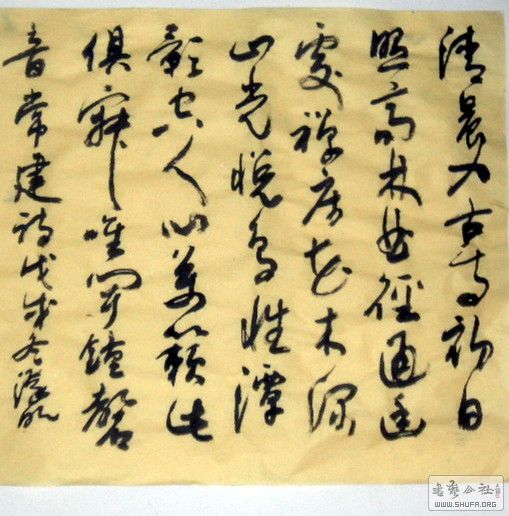 清晨入古寺初日
照高林曲徑通幽
處禪房花木深
山光悅鳥性潭
影空人心萬籟此
俱寂唯聞鐘磬
音常建詩戊戌冬
書藝公社
WWW.SHUFA.ORG